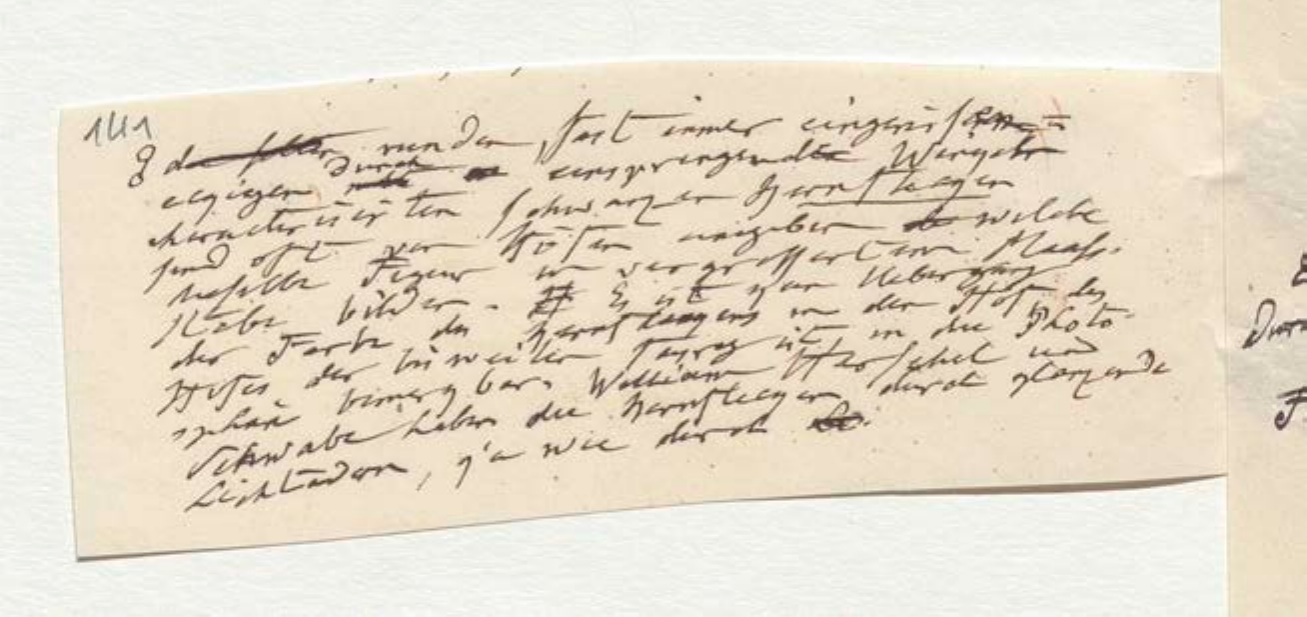 1411
8 runden, fast immer eingerissen
eckigen durch einspringende Winkel
characterisirten schwarzen Kernflecken
sind oft von Höfen umgeben welche
dieselbe Figur in vergrössertem Maass-
stabe bilden. Es ist kein Uebergang
der Farbe des Kernfleckens in den Hof des
Hofes der bisweilen faserig ist in die Photo-
sphäre bemerkbar. William Herschel und
Schwabe haben die Kernflecken durch glänzende
Lichtadern, ja wie durch